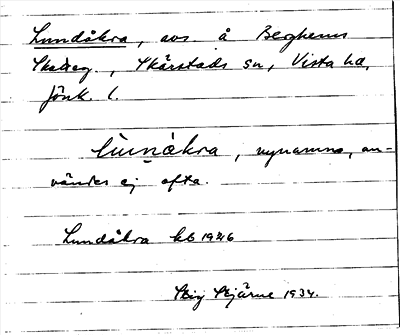 Lundåkra, avs. å Berghems
Skatteg., Skärstads sn, Vista hd,
Jönk. l.
lùnåkra, nynamns, an-
vändes ej ofta.
Lundåkra kb 1926
Stig Stjärne 1934.